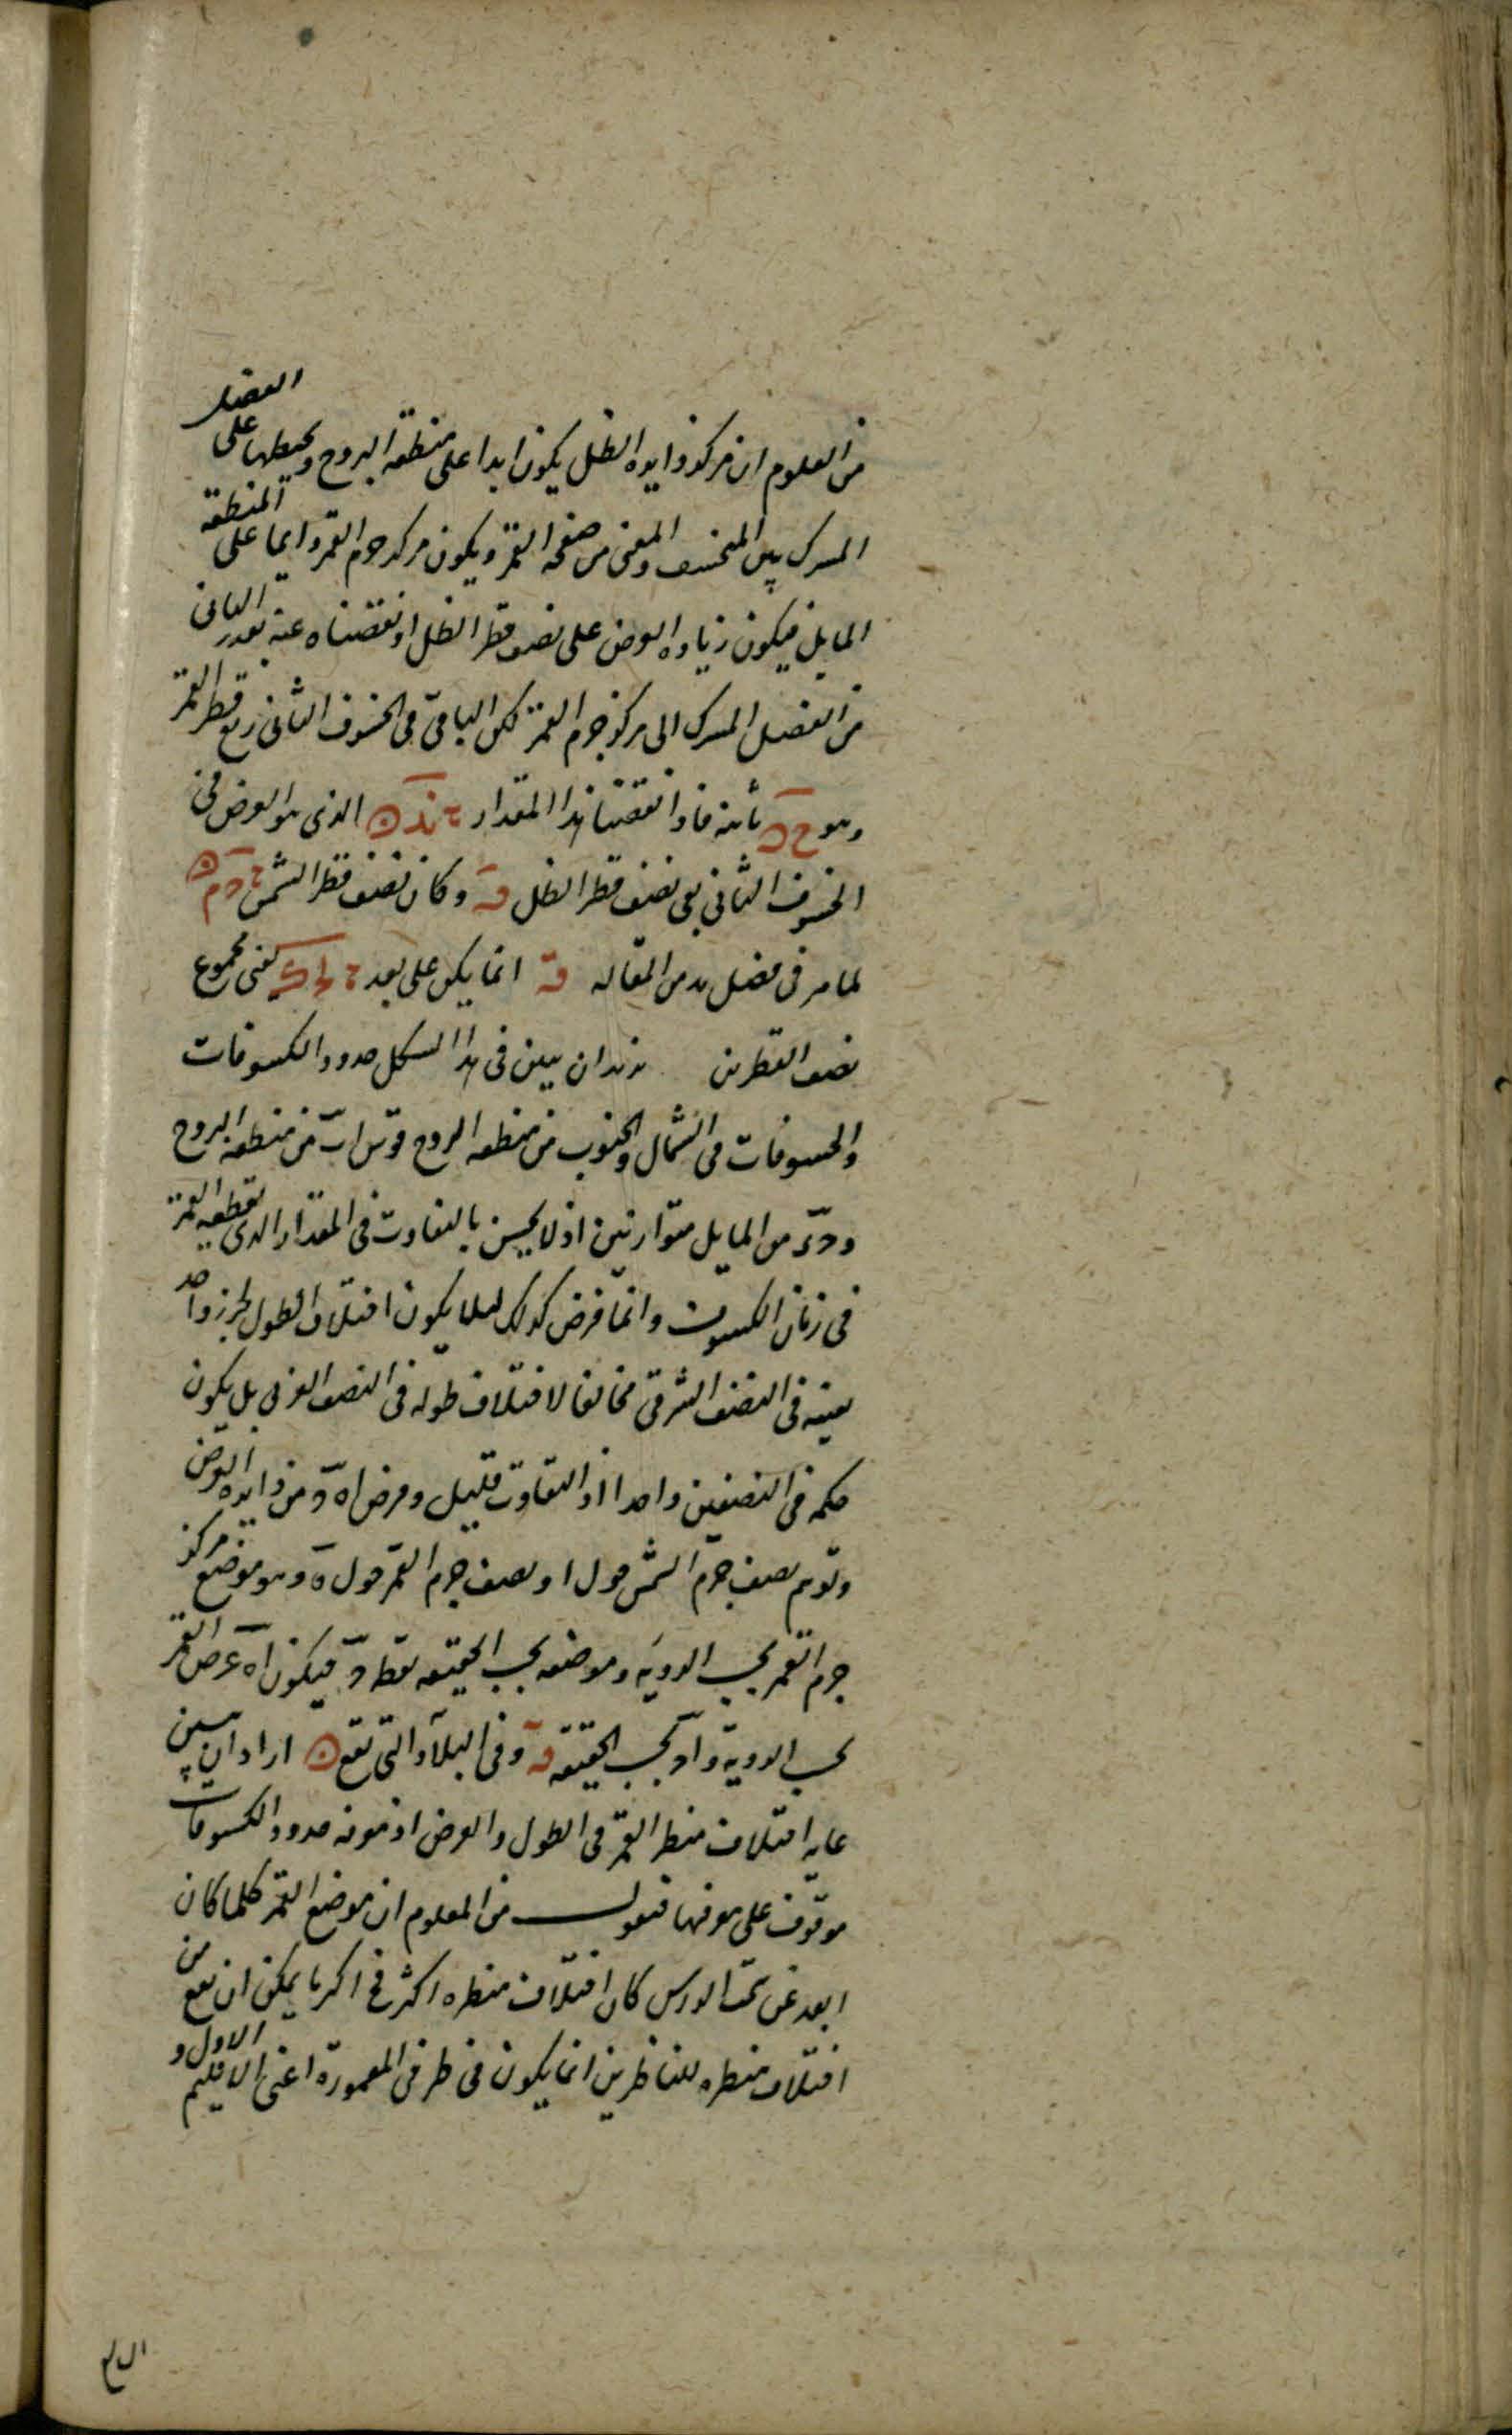 من المعلوم ان مركز دايره الظل يكون ابدا على منطقه البروج ومحيطها على الفصل
المشترك بين المنخسف والمضئ من صفحه القمر ويكون مركز جرم القمر دايما على المنطقه
المايل فيكون زياده العرض على نصف قطر الظل او نقصناه عنه بقدر الباقى
من الفصل المشترك الى مركز جرم القمر لكن الباقى فى الخسوف الثانى ربع قطر القمر
وهو ثانيه فاذا نقصنا هذا المقدار الذى هو العرض فى
الخسوف الثانى بقى نصف قطر الظل قه وكان نصف قطر الشمس
لما مر فى فصل يد من المقاله قه انما يكن على بعد يعنى مجموع
نصف القطرين نريد ان نبين فى هذا الشكل حدود الكسوفات
والخسوفات فى الشمال والجنوب من منطقه البروج قوس اب من منطقه البروج
ودى من المايل متوازيتين اذ لا يحس بالتفاوت فى المقدار الذى يقطعه القمر
فى زمان الكسوف وانما فرض كذلك ليلا يكون اختلاف الطول لجزء واحد
بعينه فى النصف الشرقى مخالفا لاختلاف طوله فى النصف الغربى بل يكون
حكمه فى النصفين واحدا اذ التفاوت قليل وفرض اه د من دايره العرض
وتوهم نصف جرم الشمس حول ا ونصف جرم القمر حول ه وهو موضع مركز
جرم القمر بحسب الرويه وموضعه بحسب الحقيقه نقطه د فيكون اه عرض القمر
بحسب الرويه واد بحسب الحقيقه قه وفى البلاد التى تقع اراد ان يبين
غايه اختلاف منظر القمر فى الطول والعرض اذ معرفه حدود الكسوفات
موقوف على معرفتها فنقول من المعلوم ان موضع القمر كلما كان
ابعد عن سمت الراس كان اختلاف منظره اكثر فح اكثر ما يمكن ان يقع من
اختلاف منظره للناظرين انما يكون فى طرفى المعموره اعنى الاقليم الاول و